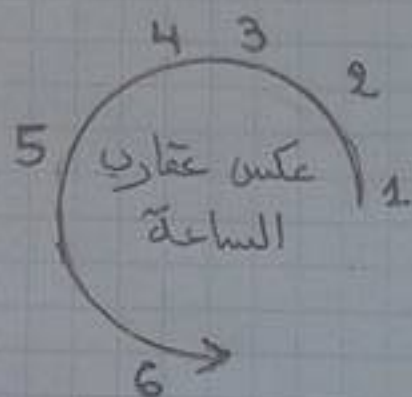 4 3
2
5
1
عكس عقارب
الساعة
6